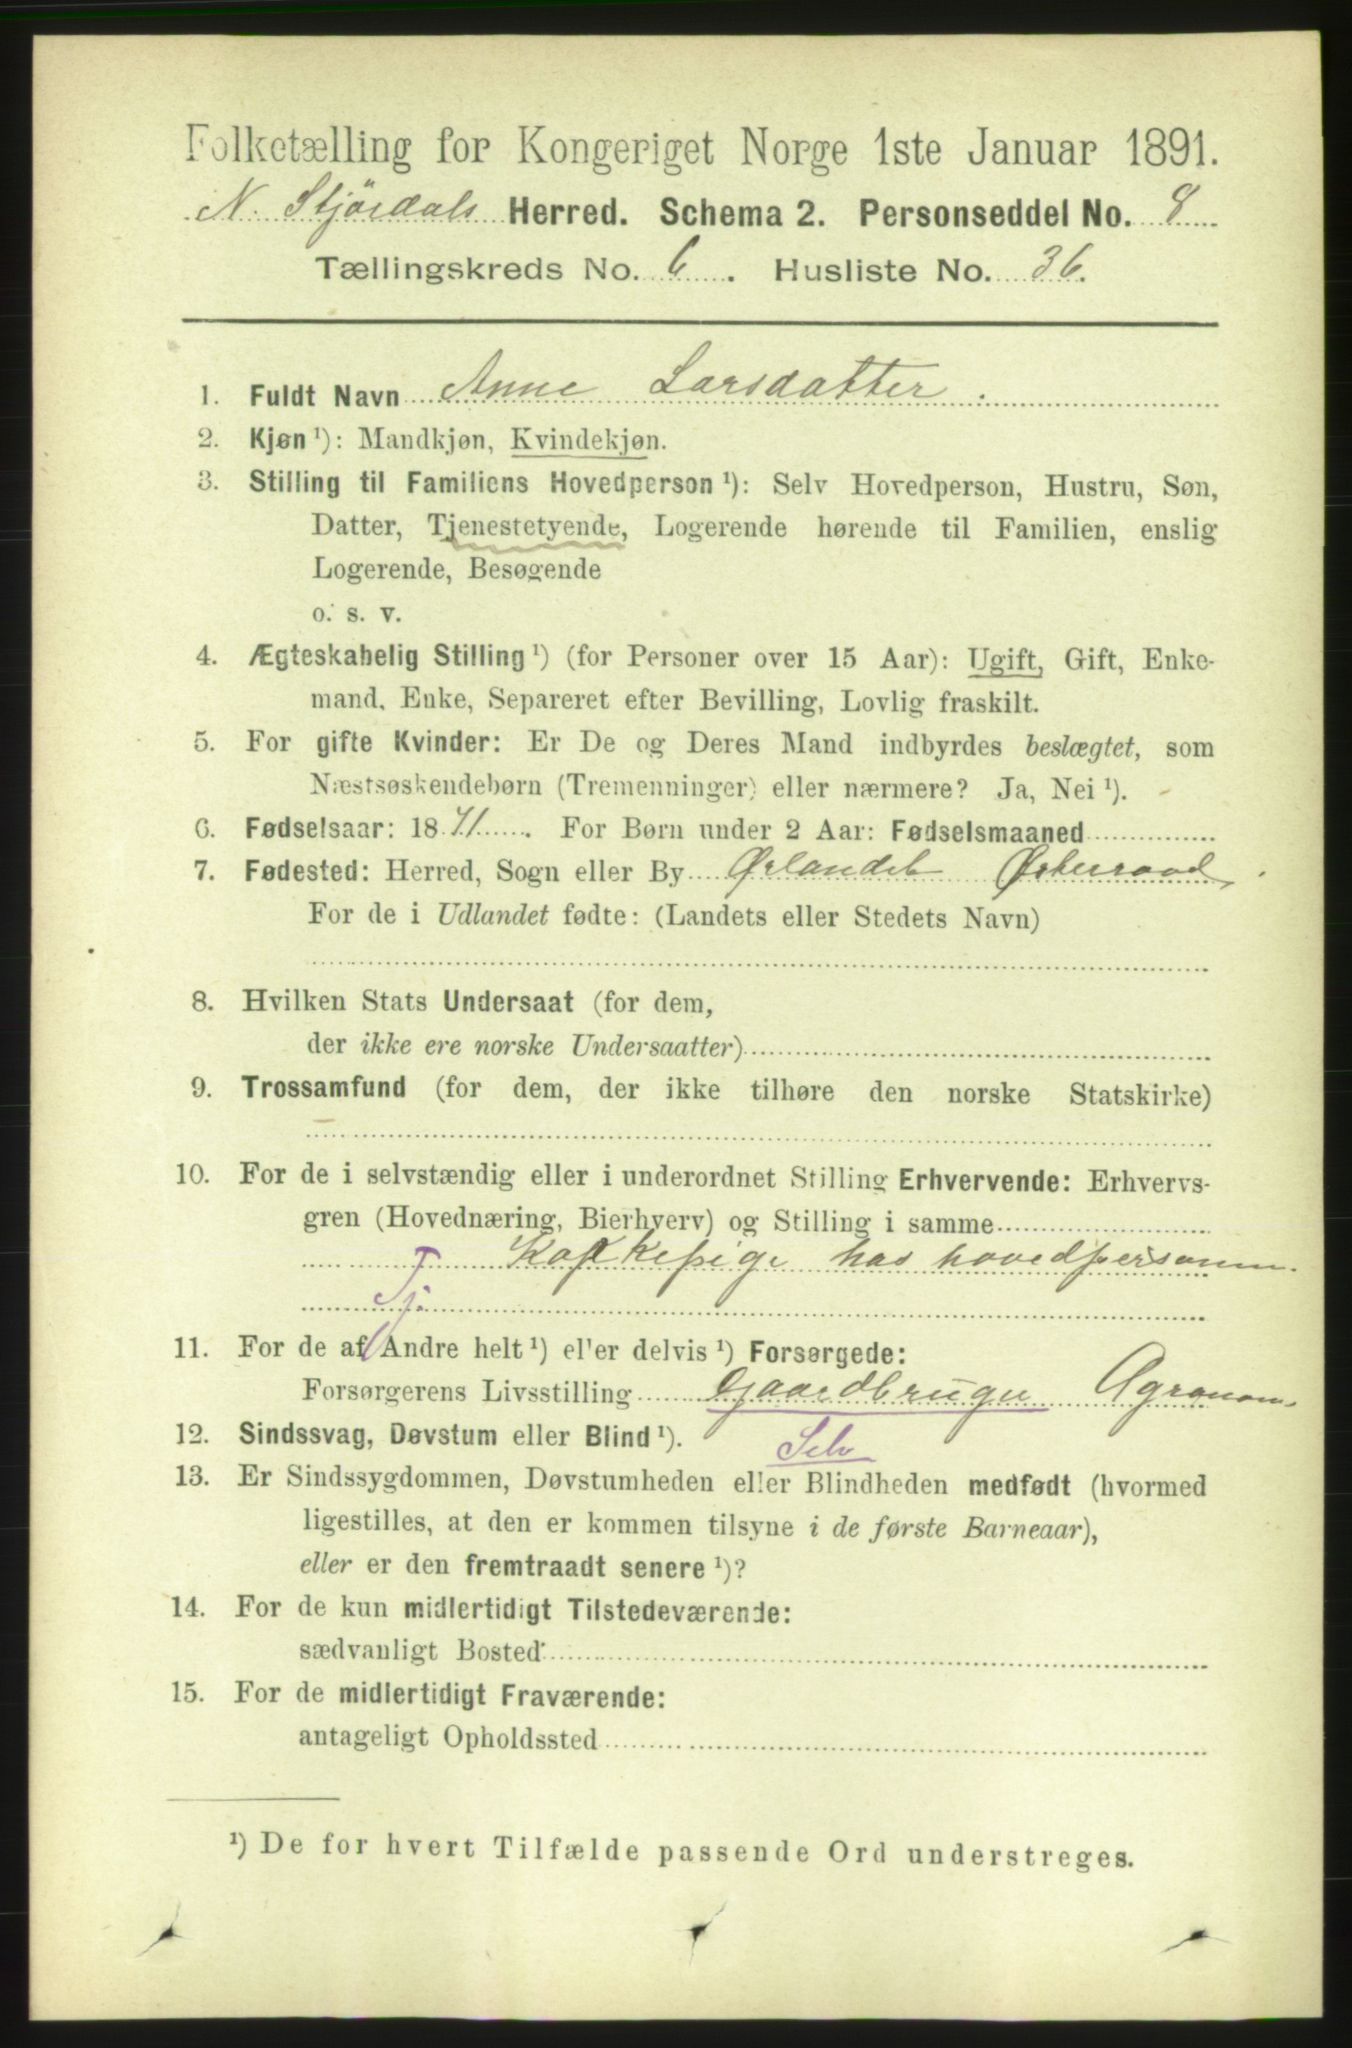 Folketælling for Kongeriget Norge 1ste Januar 1891.
N. Stjördals Herred. Schema 2. Personseddel No. 8
Tællingskreds No. 6. Husliste No. 36.
1. Fuldt Navn Anne Larsdatter.
2. Kjøn ¹): Mandkjøn, Kvindekjøn.
3. Stilling til Familiens Hovedperson ¹): Selv Hovedperson, Hustru, Søn,
Datter, Tjenestetyende, Logerende hørende til Familien, enslig
Logerende, Besøgende
o. s. v.
4. Ægteskabelig Stilling ¹) (for Personer over 15 Aar): Ugift, Gift, Enke-
mand, Enke, Separeret efter Bevilling, Lovlig fraskilt.
5. For gifte Kvinder: Er De og Deres Mand indbyrdes beslægtet, som
Næstsøskendebørn (Tremenninger) eller nærmere? Ja, Nei ¹).
6. Fødselsaar: 1871. For Børn under 2 Aar: Fødselsmaaned
7. Fødested: Herred, Sogn eller By Ørlandet
For de i Udlandet fødte: (Landets eller Stedets Navn)
8. Hvilken Stats Undersaat (for dem,
der ikke ere norske Undersaatter)
9. Trossamfund (for dem, der ikke tilhøre den norske Statskirke)
10. For de i selvstændig eller i underordnet Stilling Erhvervende: Erhvervs-
gren (Hovednæring, Bierhverv) og Stilling i samme
Kokkepige hos hovedpersonen.
Tj.
11. For de af Andre helt ¹) eller delvis ¹) Forsørgede:
Forsørgerens Livsstilling Gaardbruger Agronom.
12. Sindssvag, Døvstum eller Blind ¹).
Selv
13. Er Sindssygdommen, Døvstumheden eller Blindheden medfødt (hvormed
ligestilles, at den er kommen tilsyne i de første Barneaar),
eller er den fremtraadt senere ¹)?
14. For de kun midlertidigt Tilstedeværende:
sædvanligt Bosted
15. For de midlertidigt Fraværende:
antageligt Opholdssted
¹) De for hvert Tilfælde passende Ord understreges.